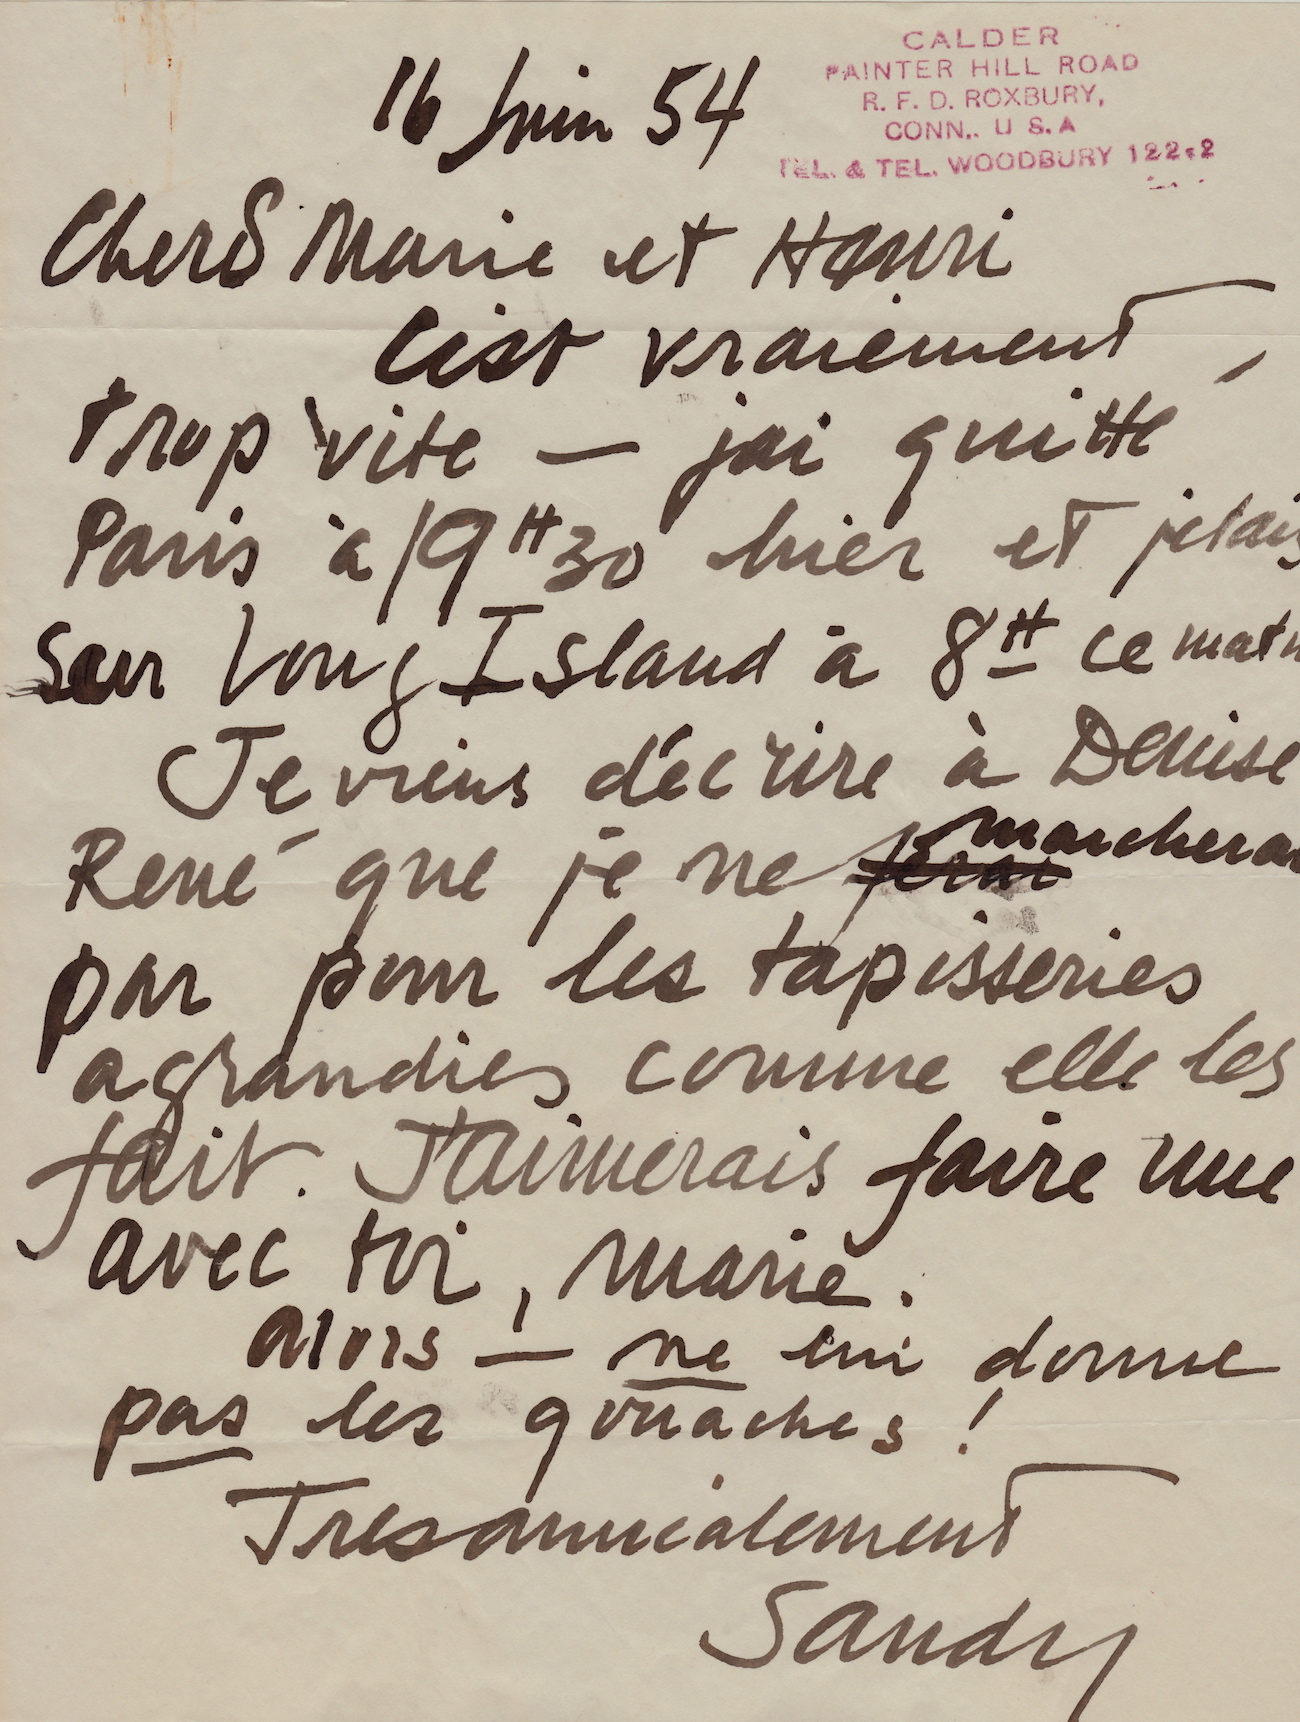 CALDER
PAINTER HILL ROAD
R. F. D. ROXBURY,
CONN.. U S. A
TEL. & TEL. WOODBURY 122-2
16 Juin 54
Chers Marie et Henri
C'est vraiement
trop vite — j'ai quitté
Paris à 19H30 hier et j'etais
sur Long Island à 8H ce matin
Je viens d'écrire à Denise
René que je ne ferai marcherai
par pour les tapisseries
agrandies comme elle les
fait. J'aimerais faire une
avec toi, Marie.
Alors — ne lui donne
pas les gouaches !
Tres amicalement
Sandy